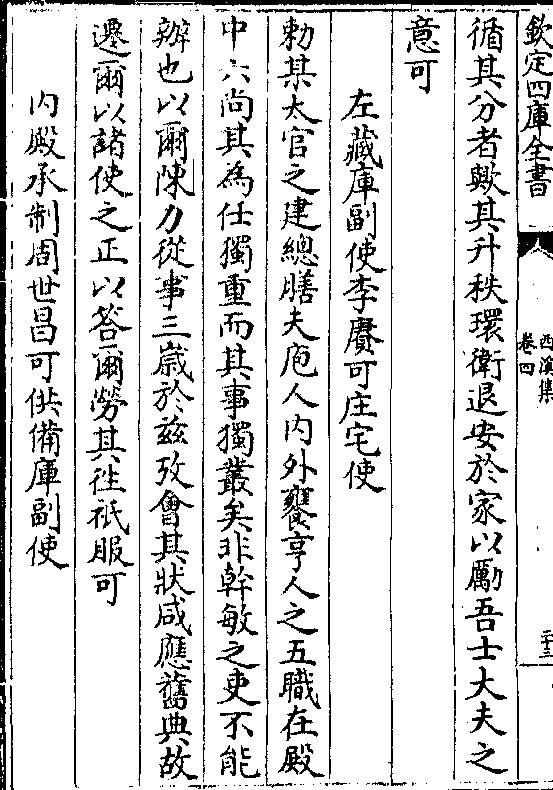 欽定四庫全書
西溪集
卷四
二十三
循其分者歟其升秩環衛退安於家以勵吾士大夫之
意可
左藏庫副使李賡可庄宅使
勅某太官之建總膳夫庖人内外饔亨人之五職在殿
中六尚其為任獨重而其事獨叢矣非幹敏之吏不能
辦也以爾陳力從事三嵗於兹攷會其狀咸應舊典故
遷爾以諸使之正以答爾勞其徃祇服可
内殿承制周世昌可供備庫副使